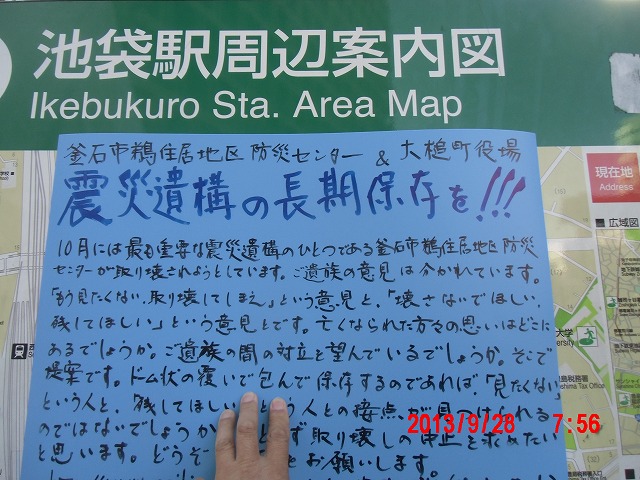 池袋駅周辺案内図
Ikebukuro Sta. Area Map
釜石市鵜住居地区防災センター & 大槌町役場
震災遺構の長期保存を!!!
現在地
Address
広域図
10月には最も重要な震災遺構のひとつである釜石市鵜住居地区防災
センターが取り壊されようとしています。ご遺族の意見は分かれています。
「もう見たくない、取り壊してしまえ」という意見と、「壊さないでほしい、
残してほしい」という意見とです。亡くなられた方々の思いはどこに
あるでしょうか。ご遺族の間の対立を望んでいるでしょうか。そこで
提案です。ドーム状の覆いで包んで保存するのであれば、「見たくない」
という人と、残してほしいという人との接点が見つけられる
のではないでしょうか
取り壊しの中止を求めたい
と思います。どうぞ
をお願いします。
大学
University
税務署
Tax Office
2013/9/28 7:56